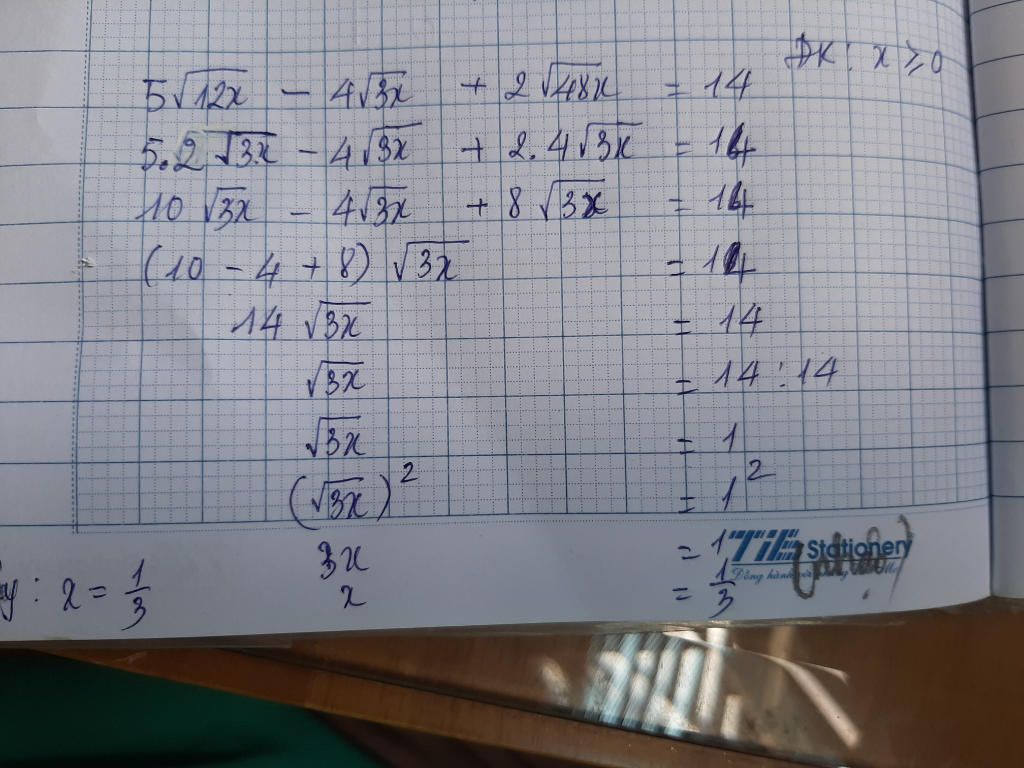 ĐK: x ≥ 0
5√12x - 4√3x + 2√48x = 14
5.2√3x - 4√3x + 2.4√3x = 14
10√3x - 4√3x + 8√3x = 14
(10 - 4 + 8) √3x = 14
14√3x = 14
√3x = 14 : 14
√3x = 1
(√3x)² = 1²
3x = 1
TiE Stationery
x = 1/3
y: x = 1/3